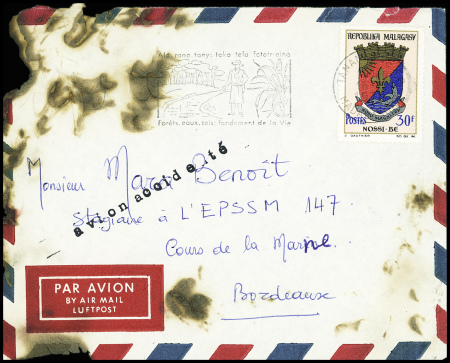 Ala rano tany: toko telo fototr'aina
Forêts, eaux, sols: fondement de la Vie
REPOBLIKA MALAGASY
POSTES
30f
NOSSI-BE
Monsieur Marc Benoît
avion accidenté
Stagiaire à L'EPSSM 147
Cours de la Marne
Bordeaux
PAR AVION
BY AIR MAIL
LUFTPOST